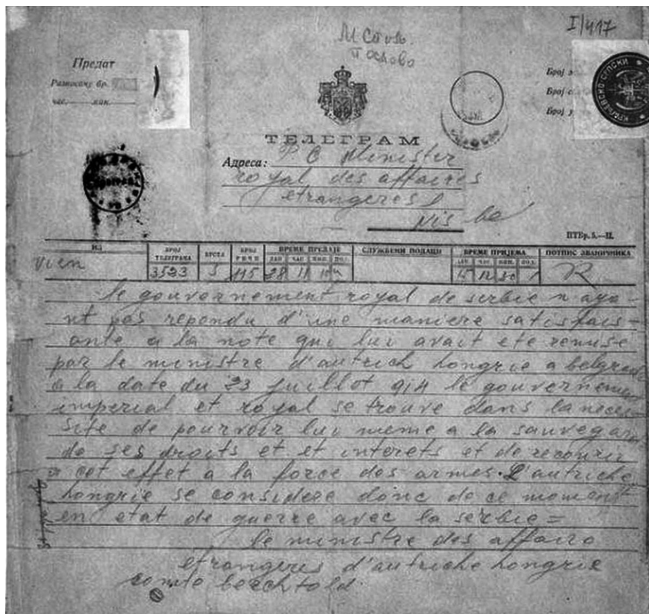 I/417
Предат
Разносачу бр.
час. кан.
Број
Број
Број
КРАЉЕВСКО СРПСКИ
ТЕЛЕГРАМ
Адреса: P C Minister
royal des affaires
etrangeres
Nis
ПТБр. 5.—II.
ИЗ
БРОЈ ТЕЛЕГРАМА
ВРСТА
БРОЈ РЕЧИ
ВРЕМЕ ПРЕДАЈЕ
СЛУЖБЕНИ ПОДАЦИ
ВРЕМЕ ПРИЈЕМА
ПОТПИС ЗВАНИЧНИКА
ДАН ЧАС МИН.
ДАН ЧАС МИН.
vien 3523 5 115 28 11 10
le gouvernement royal de serbie n aya-
nt pas repondu d'une maniere satisfais-
ante a la note qui lui avait ete remise
par le ministre d'autrich hongrie a belgrade
a la date du 23 juillot 914 le gouvernement
imperial et royal se trouve dans la neces-
site de pourvoir lui meme a la sauvegar
de ses droits et et interets et de recourir
a cet effet a la force des armes. L'autriche
hongrie se considere donc de ce moment
en etat de guerre avec la serbie =
le ministre des affairo
etrangeres d'autriche hongrie
comte berchtold